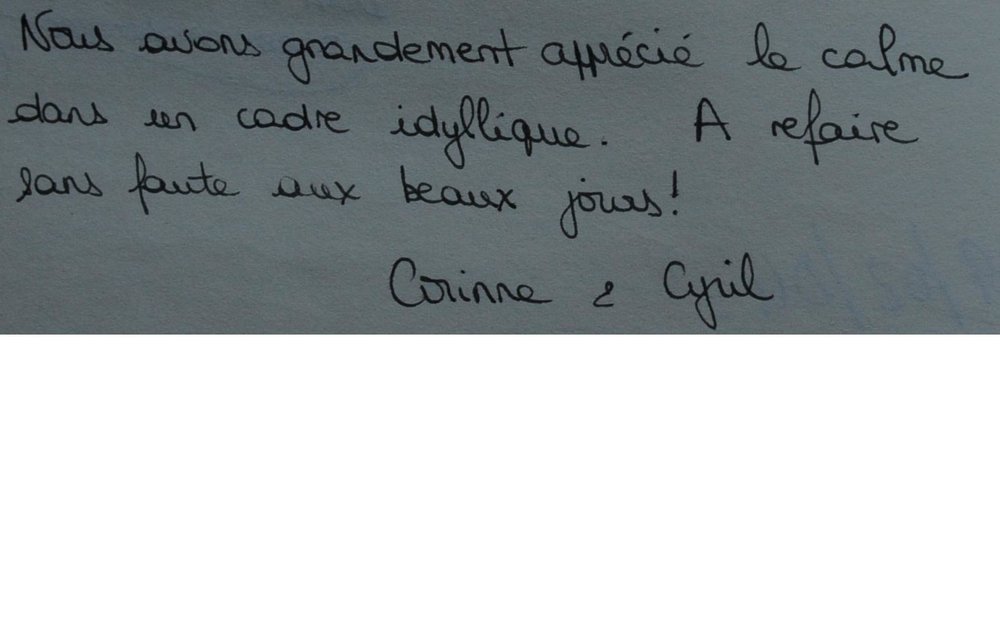 Nous avons grandement apprécié le calme
dans un cadre idyllique. A refaire
sans faute aux beaux jours!
Corinne & Cyril